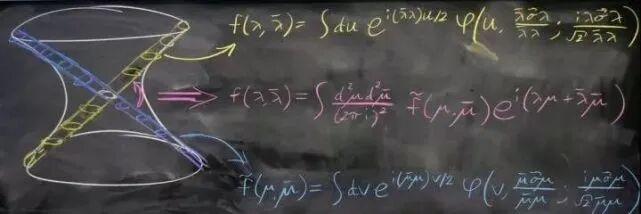 f(λ, λ̄) = ∫ du e^{i(λ̄λ)u/2} φ(u, λ̄σ⃗λ/λ̄λ ; iλσ⃗λ/√2 λ̄λ)
⇒ f(λ, λ̄) = ∫ d²μ d²μ̄/(2πi)² f̃(μ, μ̄) e^{i(λμ + λ̄μ̄)}
f̃(μ, μ̄) = ∫ dv e^{i(μ̄μ)v/2} φ(v, μ̄σ⃗μ/μ̄μ ; iμσ⃗μ/√2 μ̄μ)